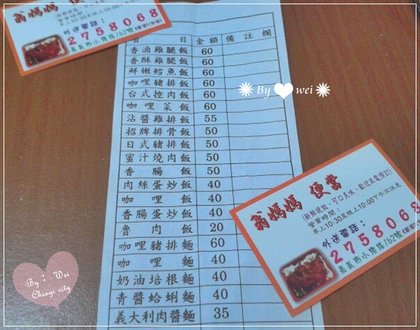 翁媽媽 便當
外送電話：
2758068
項 目 金額 備註欄
香滷雞腿飯 60
香酥雞腿飯 60
鮮嫩鱈魚飯 60
咖哩豬排飯 60
台式控肉飯 60
咖哩菜飯 60
沾醬雞排飯 55
招牌排骨飯 50
日式豬排飯 50
蜜汁燒肉飯 50
香腸飯 50
肉絲蛋炒飯 40
咖哩飯 40
香腸蛋炒飯 40
魯肉飯 20
咖哩豬排麵 60
咖哩麵 40
奶油培根麵 40
青醬蛤蜊麵 40
義大利肉醬麵 35
By wei
翁媽媽 便當
營業時間：
早上10:30至晚上10:00
外送電話：
2758068
By： Wei
Chiayi city